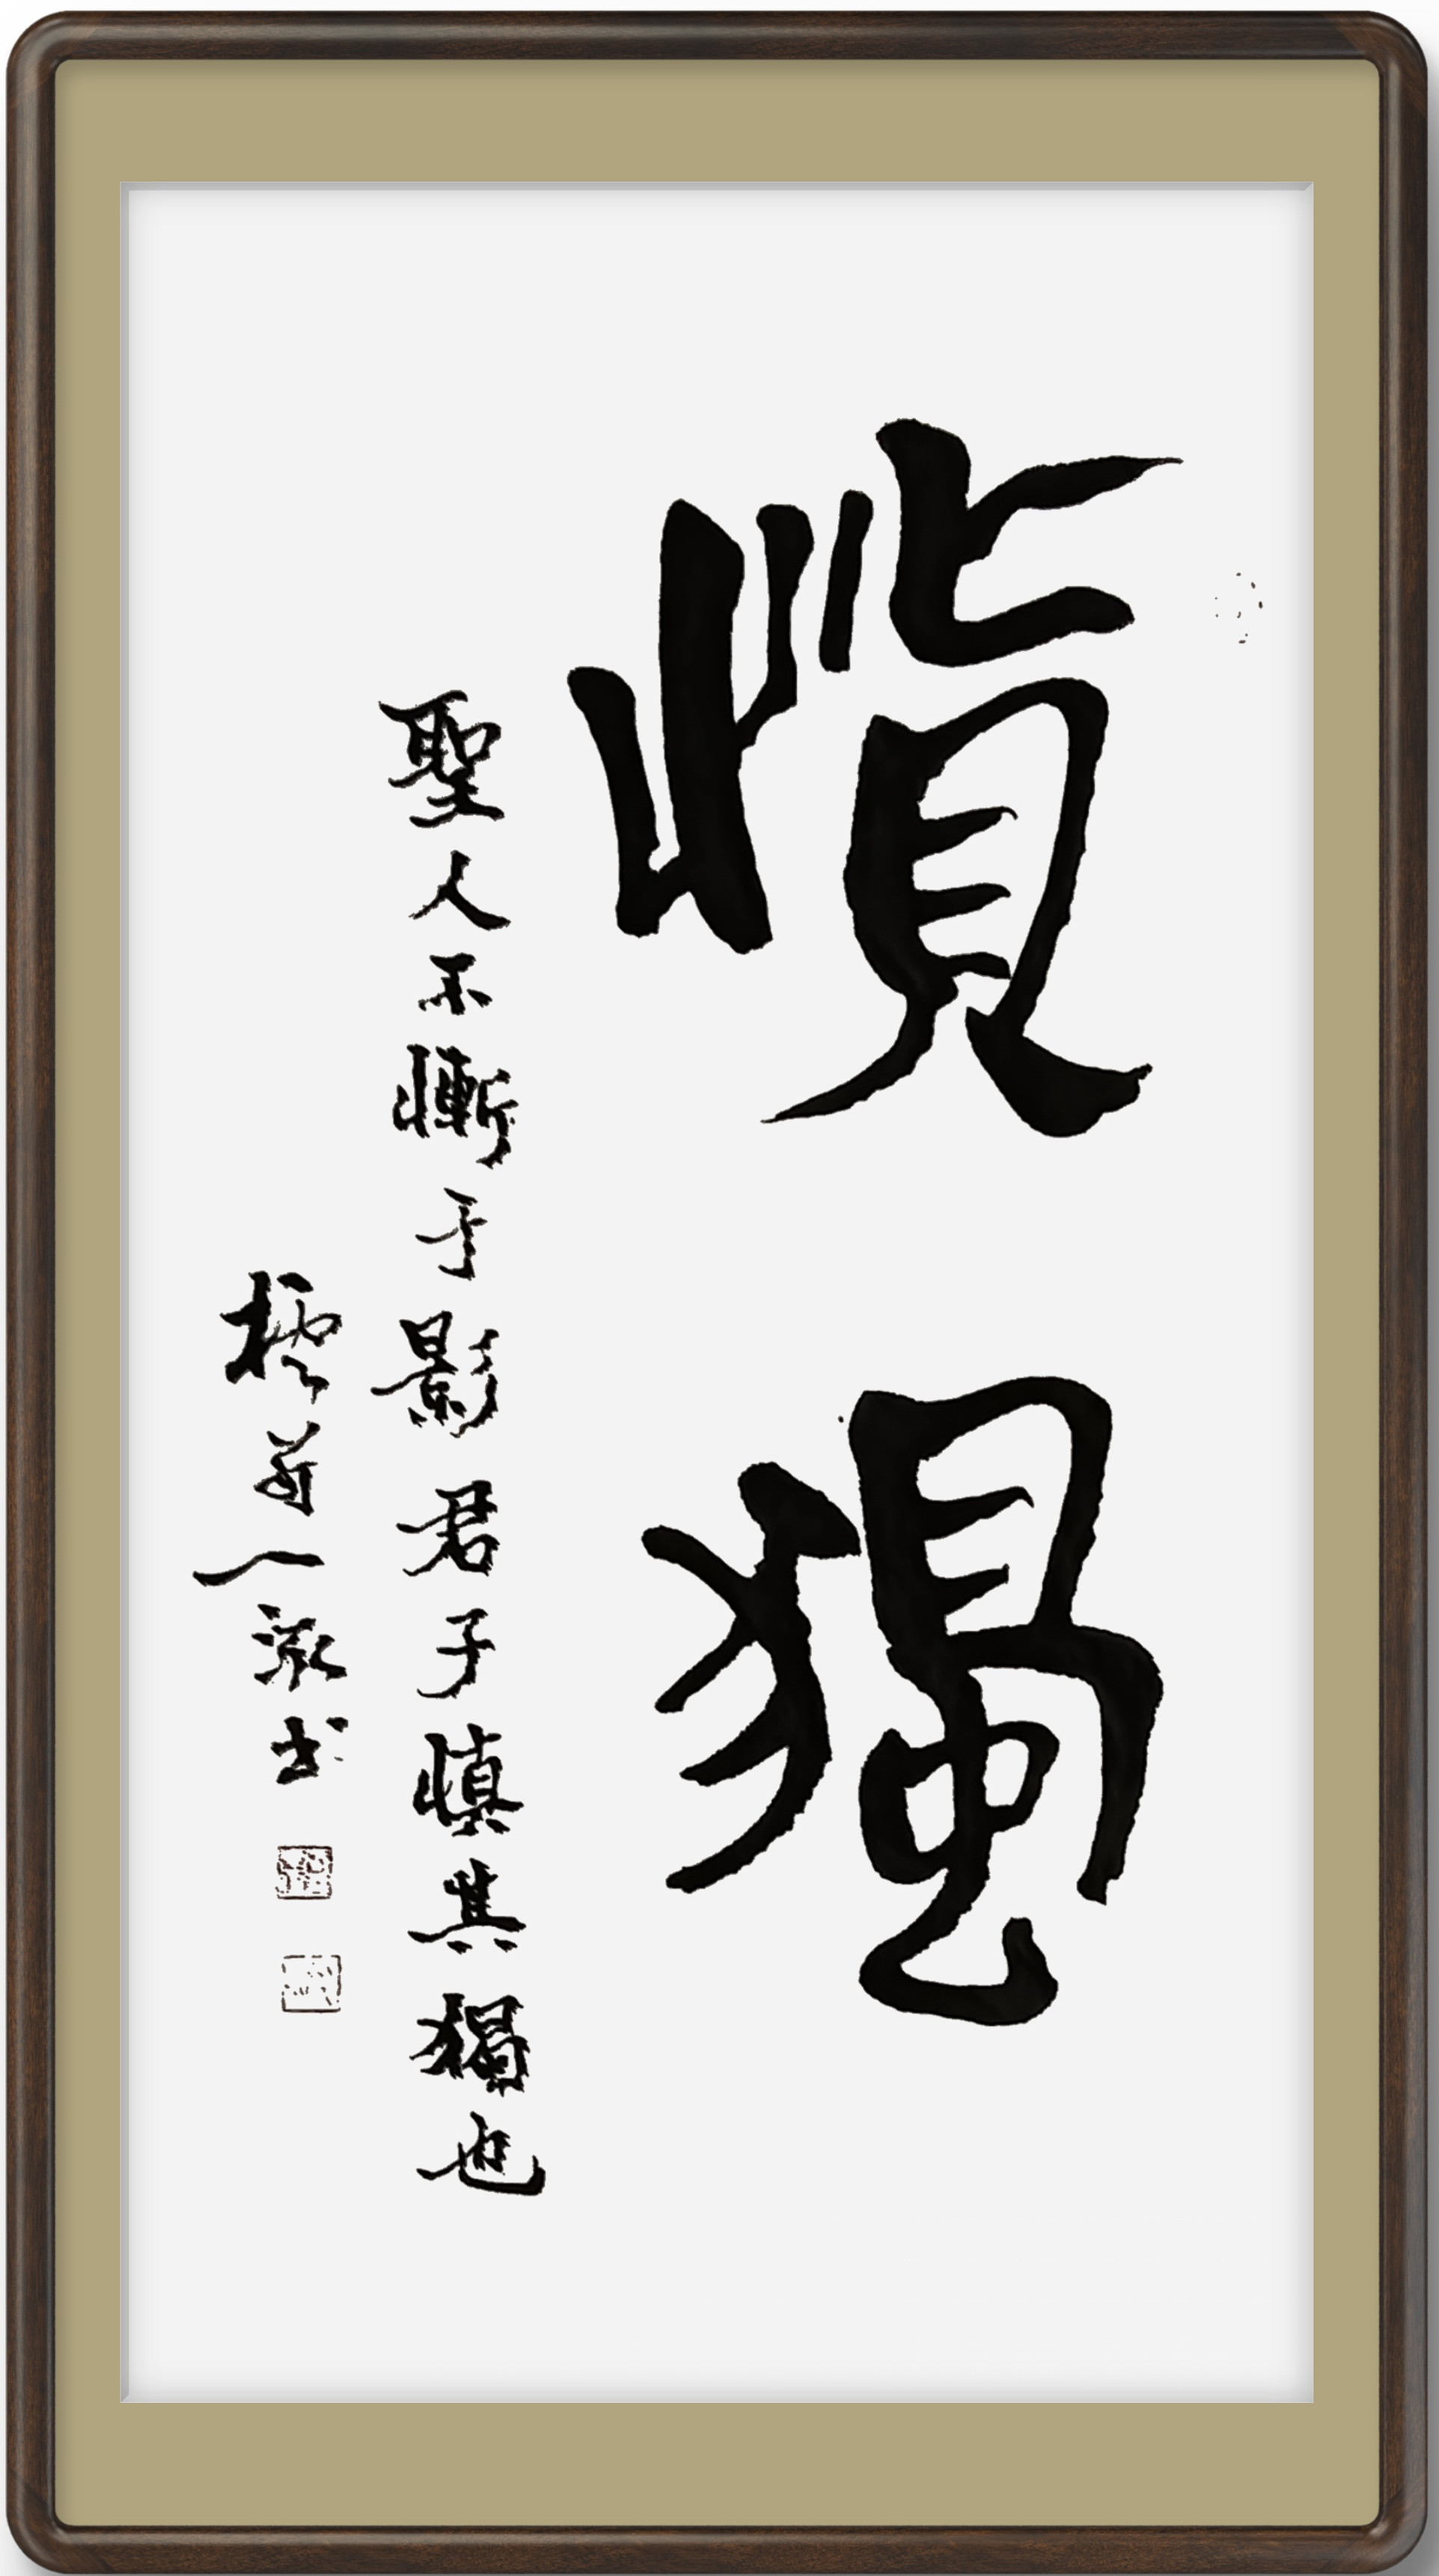 慎獨
聖人不慚于影君子慎其獨也
一
书